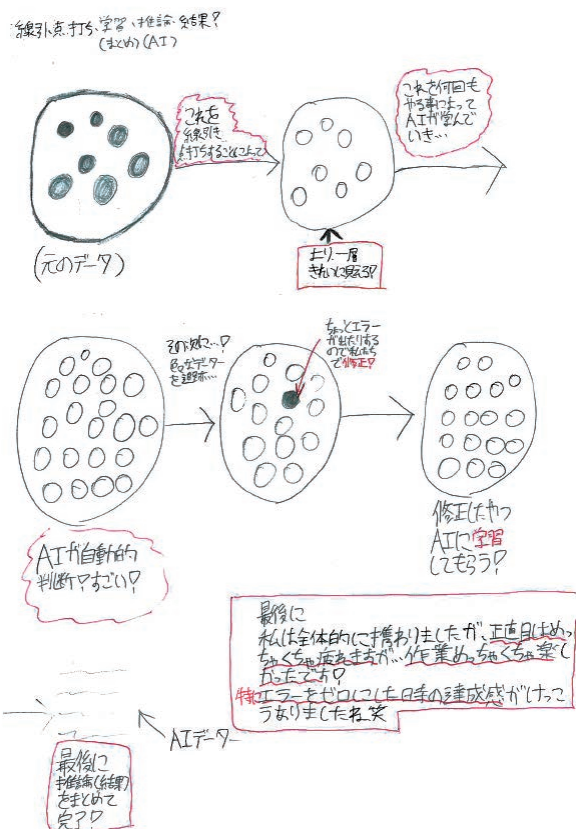 線引、点打ち、学習、推論、結果?
(まとめ)(AI)
これを
線引き
点打ちすることによって
これを何回も
やる事によって
AIが学んで
いき…
(元のデータ)
より一層
きれいに見える?
その次に…?
色々なデーター
を
ちょっとエラー
が出たりする
ので私たち
で修正?
AIが自動的
判断?すごい?
修正したやつ
AIに学習
してもらう?
最後に
私は全体的に携わりましたが、正直目はめっ
ちゃくちゃ疲れますが…作業めっちゃくちゃ楽し
かったです?
特にエラーをゼロにした日手の達成感がけっこ
うなりましたね笑
AIデーター
最後に
推論(結果)
をまとめて
完了?